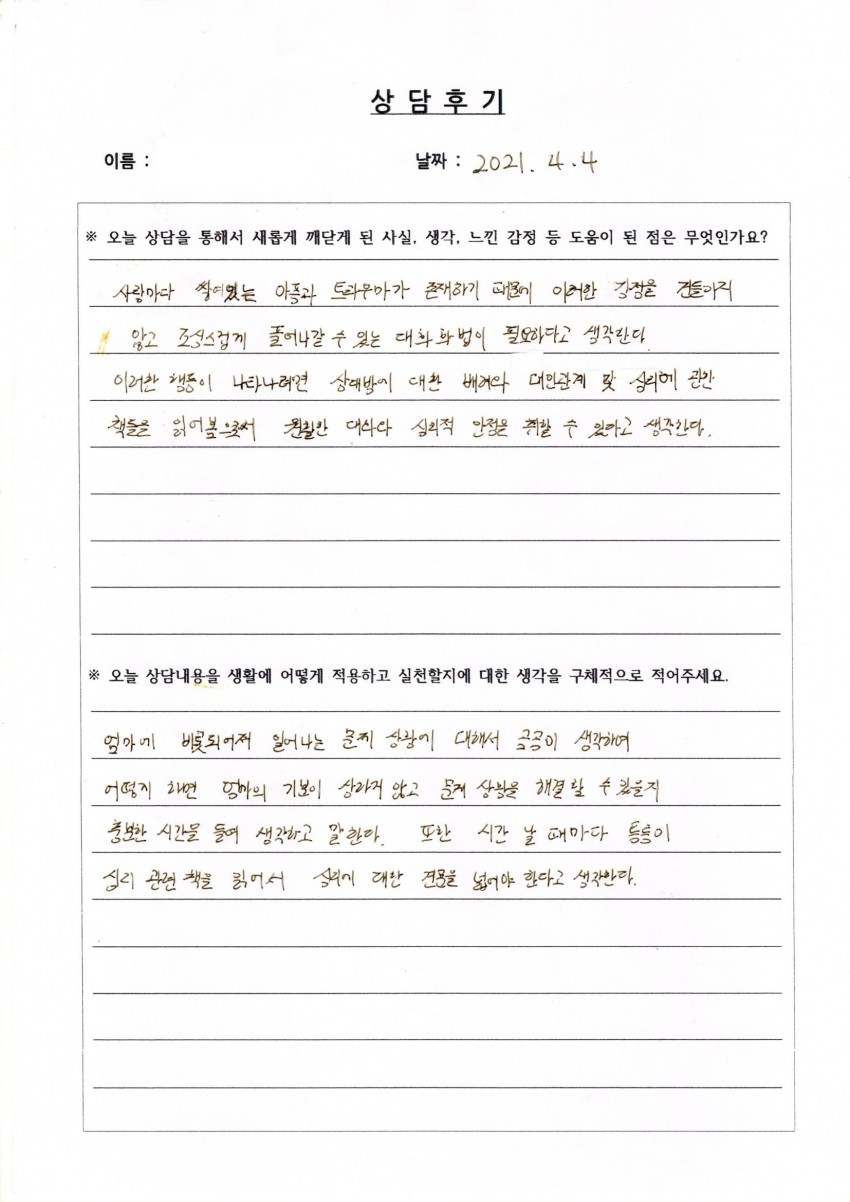 상 담 후 기
이름 :
날짜 : 2021. 4. 4
※ 오늘 상담을 통해서 새롭게 깨닫게 된 사실, 생각, 느낀 감정 등 도움이 된 점은 무엇인가요?
사람마다 쌓여있는 아픔과 트라우마가 존재하기 때문에 이러한 감정을 건들이지
않고 조심스럽게 풀어나갈 수 있는 대화 화법이 필요하다고 생각한다.
이러한 행동이 나타나려면 상대방에 대한 배려와 대인관계 및 심리에 관한
책들을 읽어봄으로써 원활한 대화와 심리적 안정을 취할 수 있다고 생각한다.
※ 오늘 상담내용을 생활에 어떻게 적용하고 실천할지에 대한 생각을 구체적으로 적어주세요.
엄마에 비롯되어져 일어나는 문제 상황에 대해서 곰곰이 생각하며
어떻게 하면 엄마의 기분이 상하지 않고 문제 상황을 해결할 수 있을지
충분한 시간을 들여 생각하고 말한다. 또한 시간 날 때마다 틈틈이
심리 관련 책을 읽어서 심리에 대한 견문을 넓혀야 한다고 생각한다.